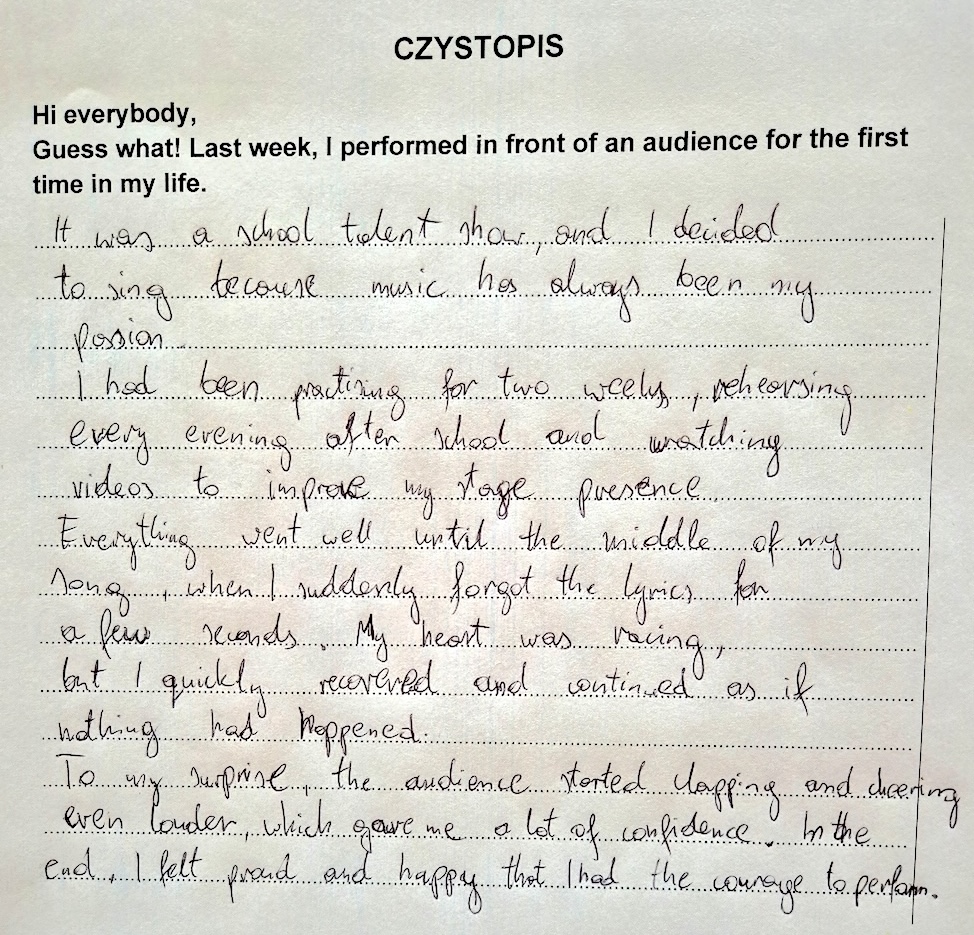 CZYSTOPIS
Hi everybody,
Guess what! Last week, I performed in front of an audience for the first
time in my life.
It was a school talent show, and I decided
to sing because music has always been my
passion.
I had been practising for two weeks, rehearsing
every evening after school and watching
videos to improve my stage presence.
Everything went well until the middle of my
song, when I suddenly forgot the lyrics for
a few seconds. My heart was racing,
but I quickly recovered and continued as if
nothing had happened.
To my surprise, the audience started clapping and cheering
even louder, which gave me a lot of confidence. In the
end, I felt proud and happy that I had the courage to perform.